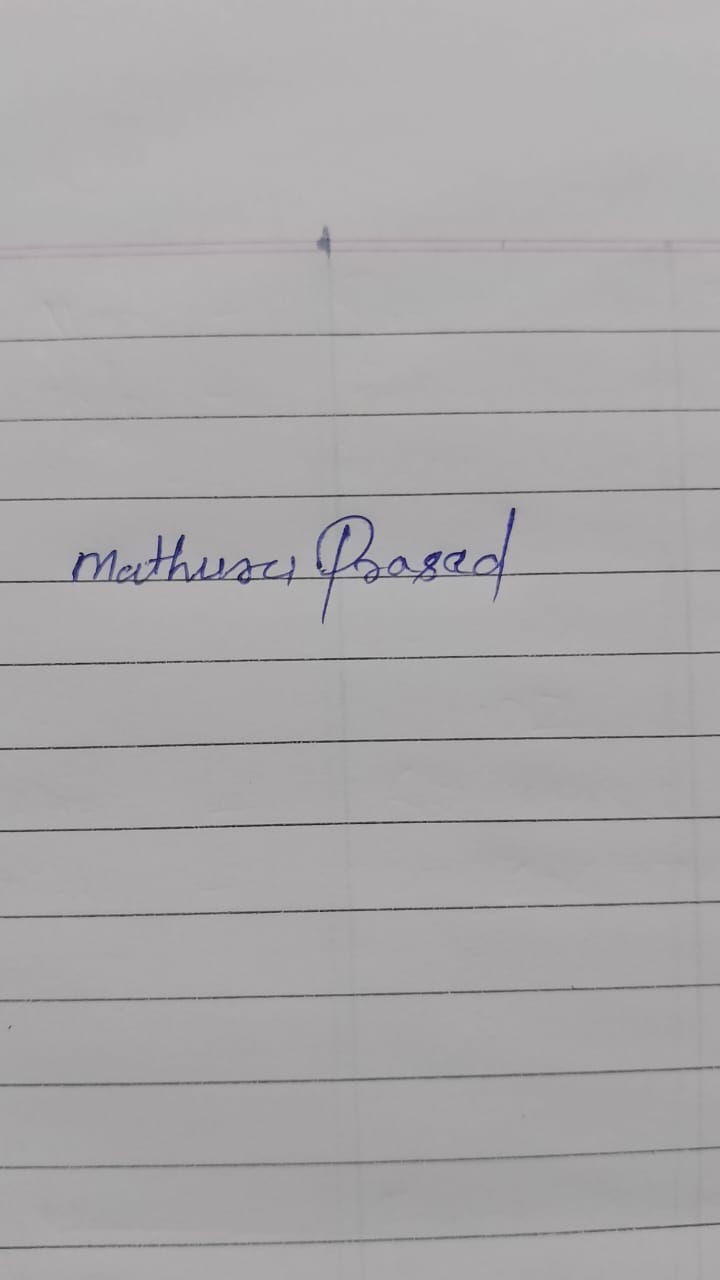 Mathura Prasad